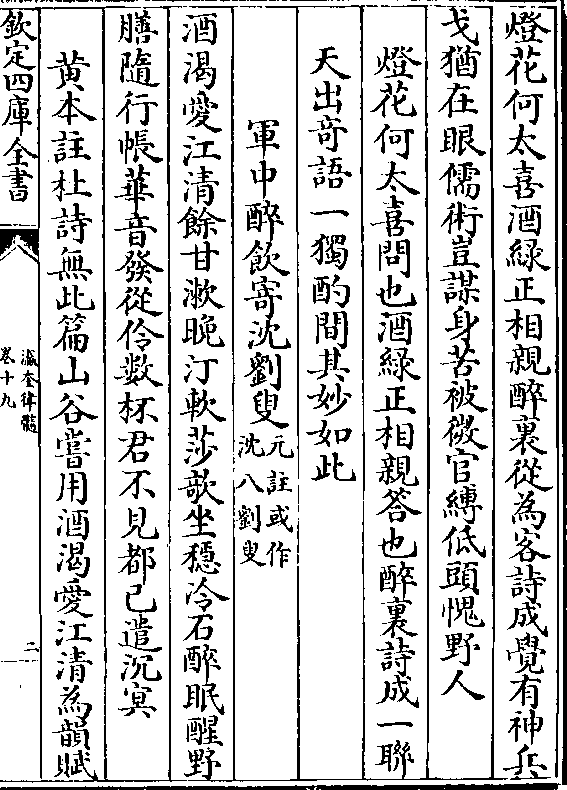 燈花何太喜酒綠正相親醉裏從為客詩成覺有神兵
戈猶在眼儒術豈謀身苦被微官縛低頭愧野人
燈花何太喜問也酒綠正相親答也醉裏詩成一聯
天出奇語一獨酌間其妙如此
軍中醉飲寄沈劉叟元註或作
沈八劉叟
酒渴愛江清餘甘漱晚汀軟莎欹坐穩冷石醉眠醒野
膳隨行帳華音發從伶數杯君不見都已遣沉冥
黄本註杜詩無此篇山谷嘗用酒渴愛江清為韻賦
欽定四庫全書
瀛奎律髓
卷十九
二